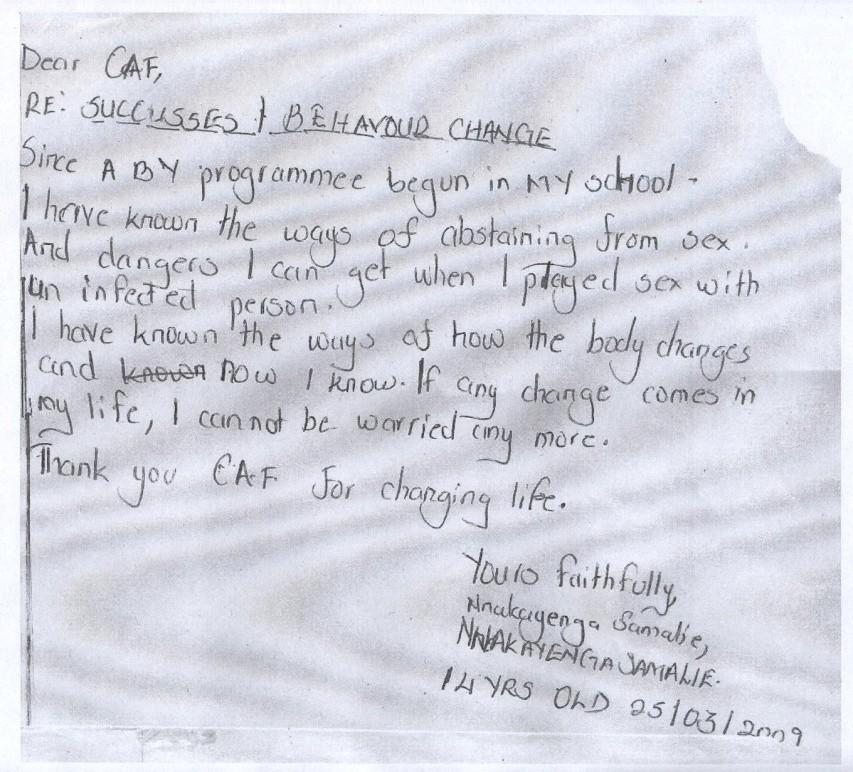 Dear CAF,
RE: SUCCUSSES / BEHAVOUR CHANGE
Since A BY programmee begun in MY school -
I have known the ways of abstaining from sex.
And dangers I can get when I played sex with
un infected person.
I have known the ways of how the body changes
and known now I know. If any change comes in
my life, I cannot be worried any more.
Thank you CAF for changing life.
Yours faithfully,
Nnakayenga Samalie,
NNAKAYENGA SAMALIE.
14 YRS OLD 25/03/2009